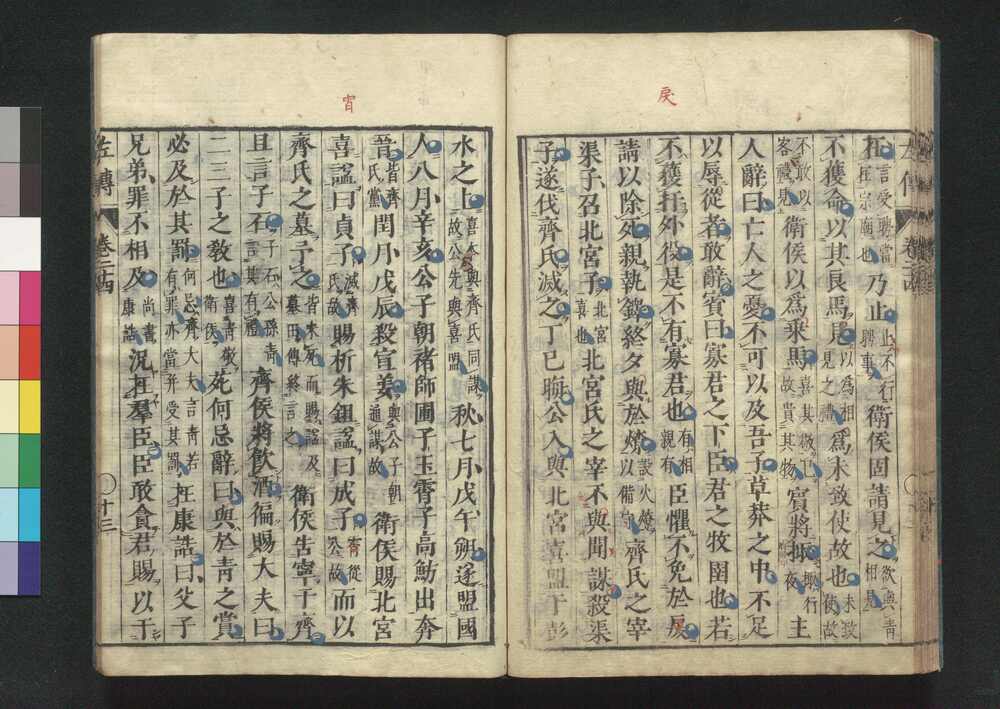 戾
在言受聘當在宗廟也乃止止不行聘事衛侯固請見之欲與青相見
不獲命以其良馬見以爲相見之禮爲未致使故也未致使故
不敢以客禮見衛侯以爲乘馬喜其敬己故貴其物賓將掫掫行夜主
人辭曰亡人之憂不可以及吾子草莽之中不足
以辱從者敢辭賓曰寡君之下臣君之牧圉也若
不獲扞外役是不有寡君也有相親有臣懼不免於戾
請以除死親執鐸終夕與於燎設火燎以備守齊氏之宰
渠子召北宮子北宮喜也北宮氏之宰不與聞謀殺渠
子遂伐齊氏滅之丁巳晦公入與北宮喜盟于彭
宵
水之上喜本與齊氏同謀故公先與喜盟秋七月戊午朔遂盟國
人八月辛亥公子朝褚師圃子玉霄子高魴出奔
晉皆齊氏黨閏月戊辰殺宣姜與公子朝通謀故衛侯賜北宮
喜諡曰貞子滅齊氏故賜析朱鉏諡曰成子霄從公故而以
齊氏之墓予之皆未死而賜諡及墓田傳終言之衛侯告寧于齊
且言子石子石公孫青言其有禮齊侯將飲酒徧賜大夫曰
二三子之敎也喜青敬衛侯苑何忌辭曰與於青之賞
必及於其罰何忌齊大夫言青若有罪亦當幷受其罰在康誥曰父子
兄弟罪不相及尚書康誥況在羣臣臣敢貪君賜以干
左傳
卷二十四
十三